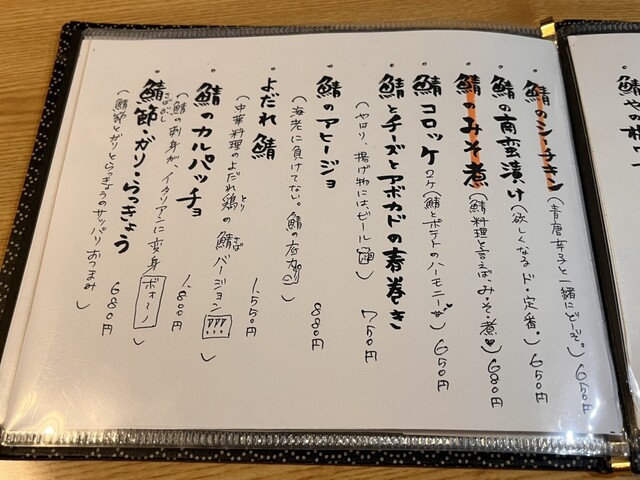 鯖のシーチキン
(青唐辛子と一緒にどーぞ。) 650円
鯖の南蛮漬け
(欲しくなるド・定番。) 650円
鯖のみそ煮
(鯖料理と言えばみ・そ・煮♥) 680円
鯖コロッケ 2ケ
(鯖とポテトのハーモニー) 650円
鯖とチーズとアボカドの春巻き
(やはり、揚げ物にはビール) 750円
鯖のアヒージョ
(海老に負けてない。鯖の底力) 880円
よだれ鯖
(中華料理のよだれ鶏の鯖バージョン) 1.550円
とり
さば
鯖のカルパッチョ
(鯖の刺身が、イタリアンに変身 ボォ〜) 1.800円
鯖節・ガリ・らっきょう
さばぶし
(鯖節とガリとらっきょうのサッパリおつまみ) 680円